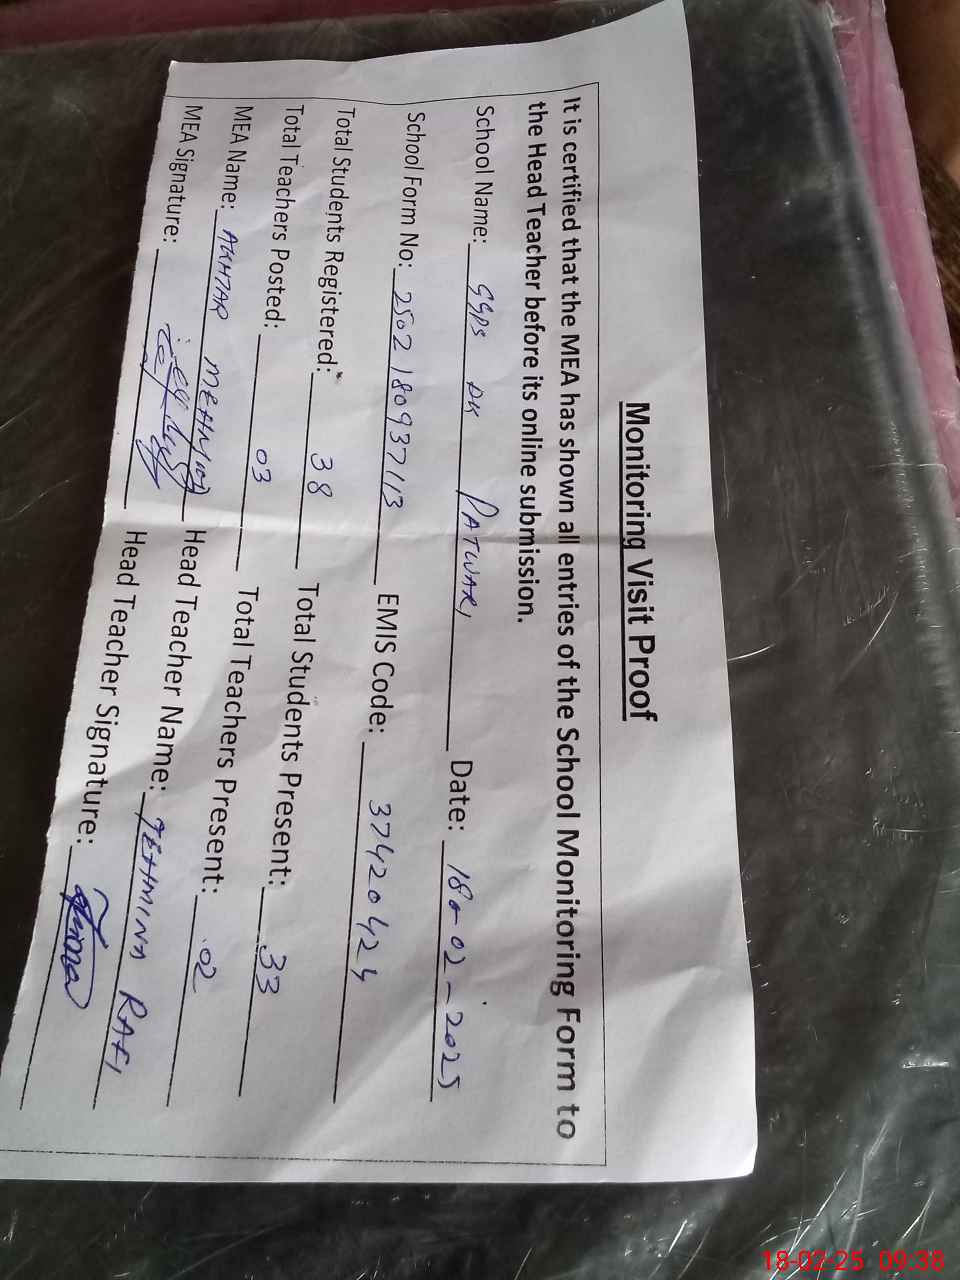 Monitoring Visit Proof
It is certified that the MEA has shown all entries of the School Monitoring Form to
the Head Teacher before its online submission.
School Name: GGPS DK PATWARI Date: 18-02-2025
School Form No: 2502180937113 EMIS Code: 37420424
Total Students Registered: 38 Total Students Present: 33
Total Teachers Posted: 03 Total Teachers Present: 02
MEA Name: AKHTAR MEHMOOD Head Teacher Name: TEHMINA RAFI
MEA Signature: Head Teacher Signature:
18-02-25 09:38